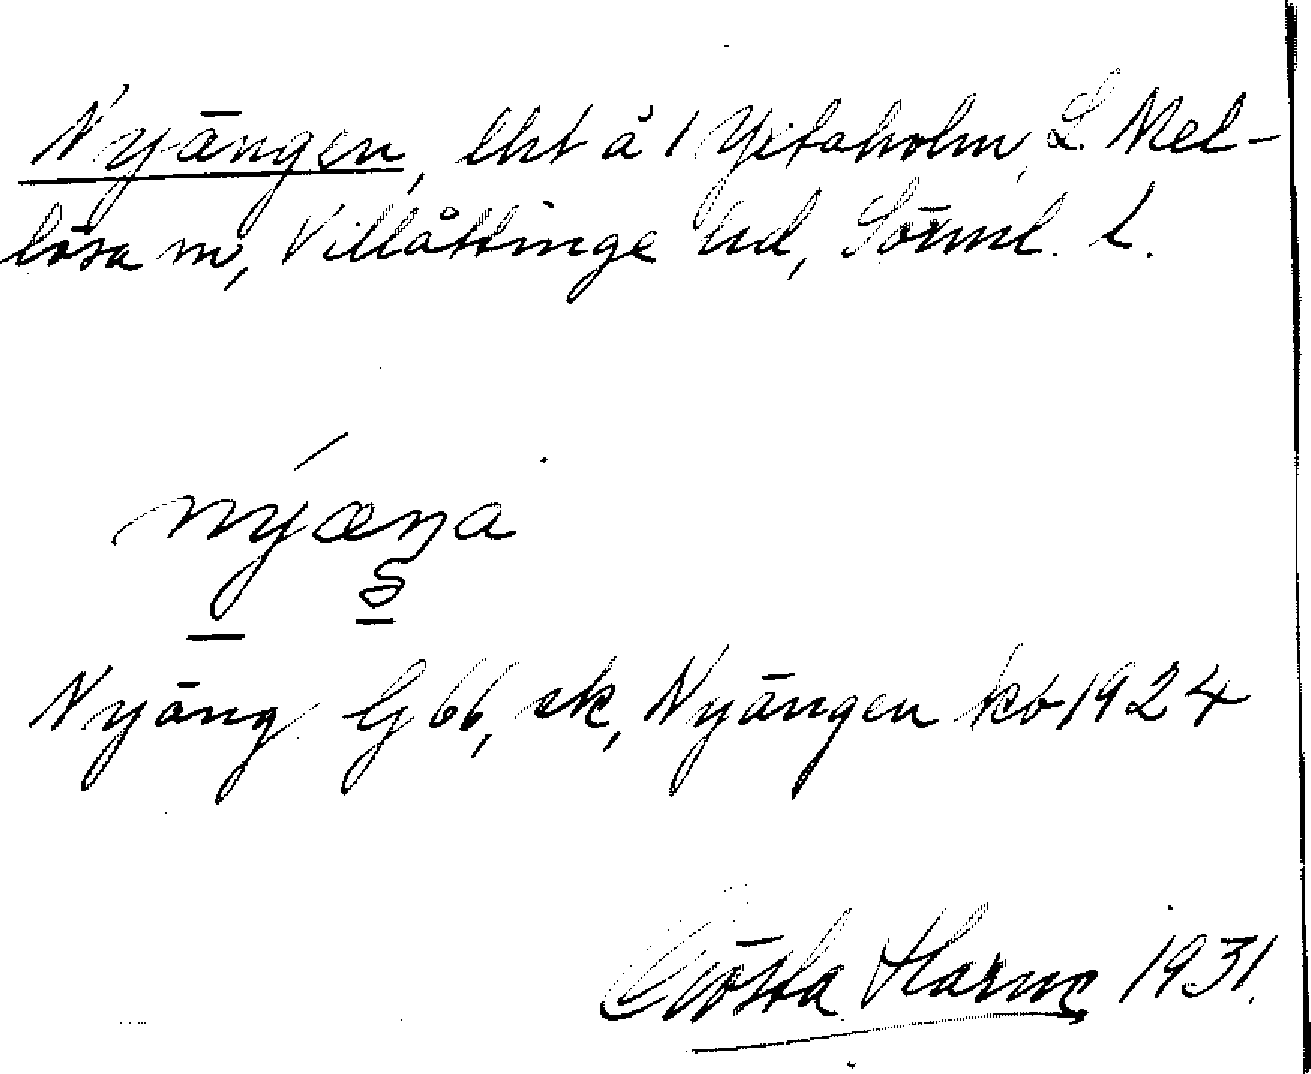 Nyängen, lht å 1 Yxtaholm, L. Mel-
lösa sn, Villåttinge hd, Sörml. l.
nýæŋa
Nyäng G 66, sk, Nyängen kb 1924
Gösta Harne 1931.